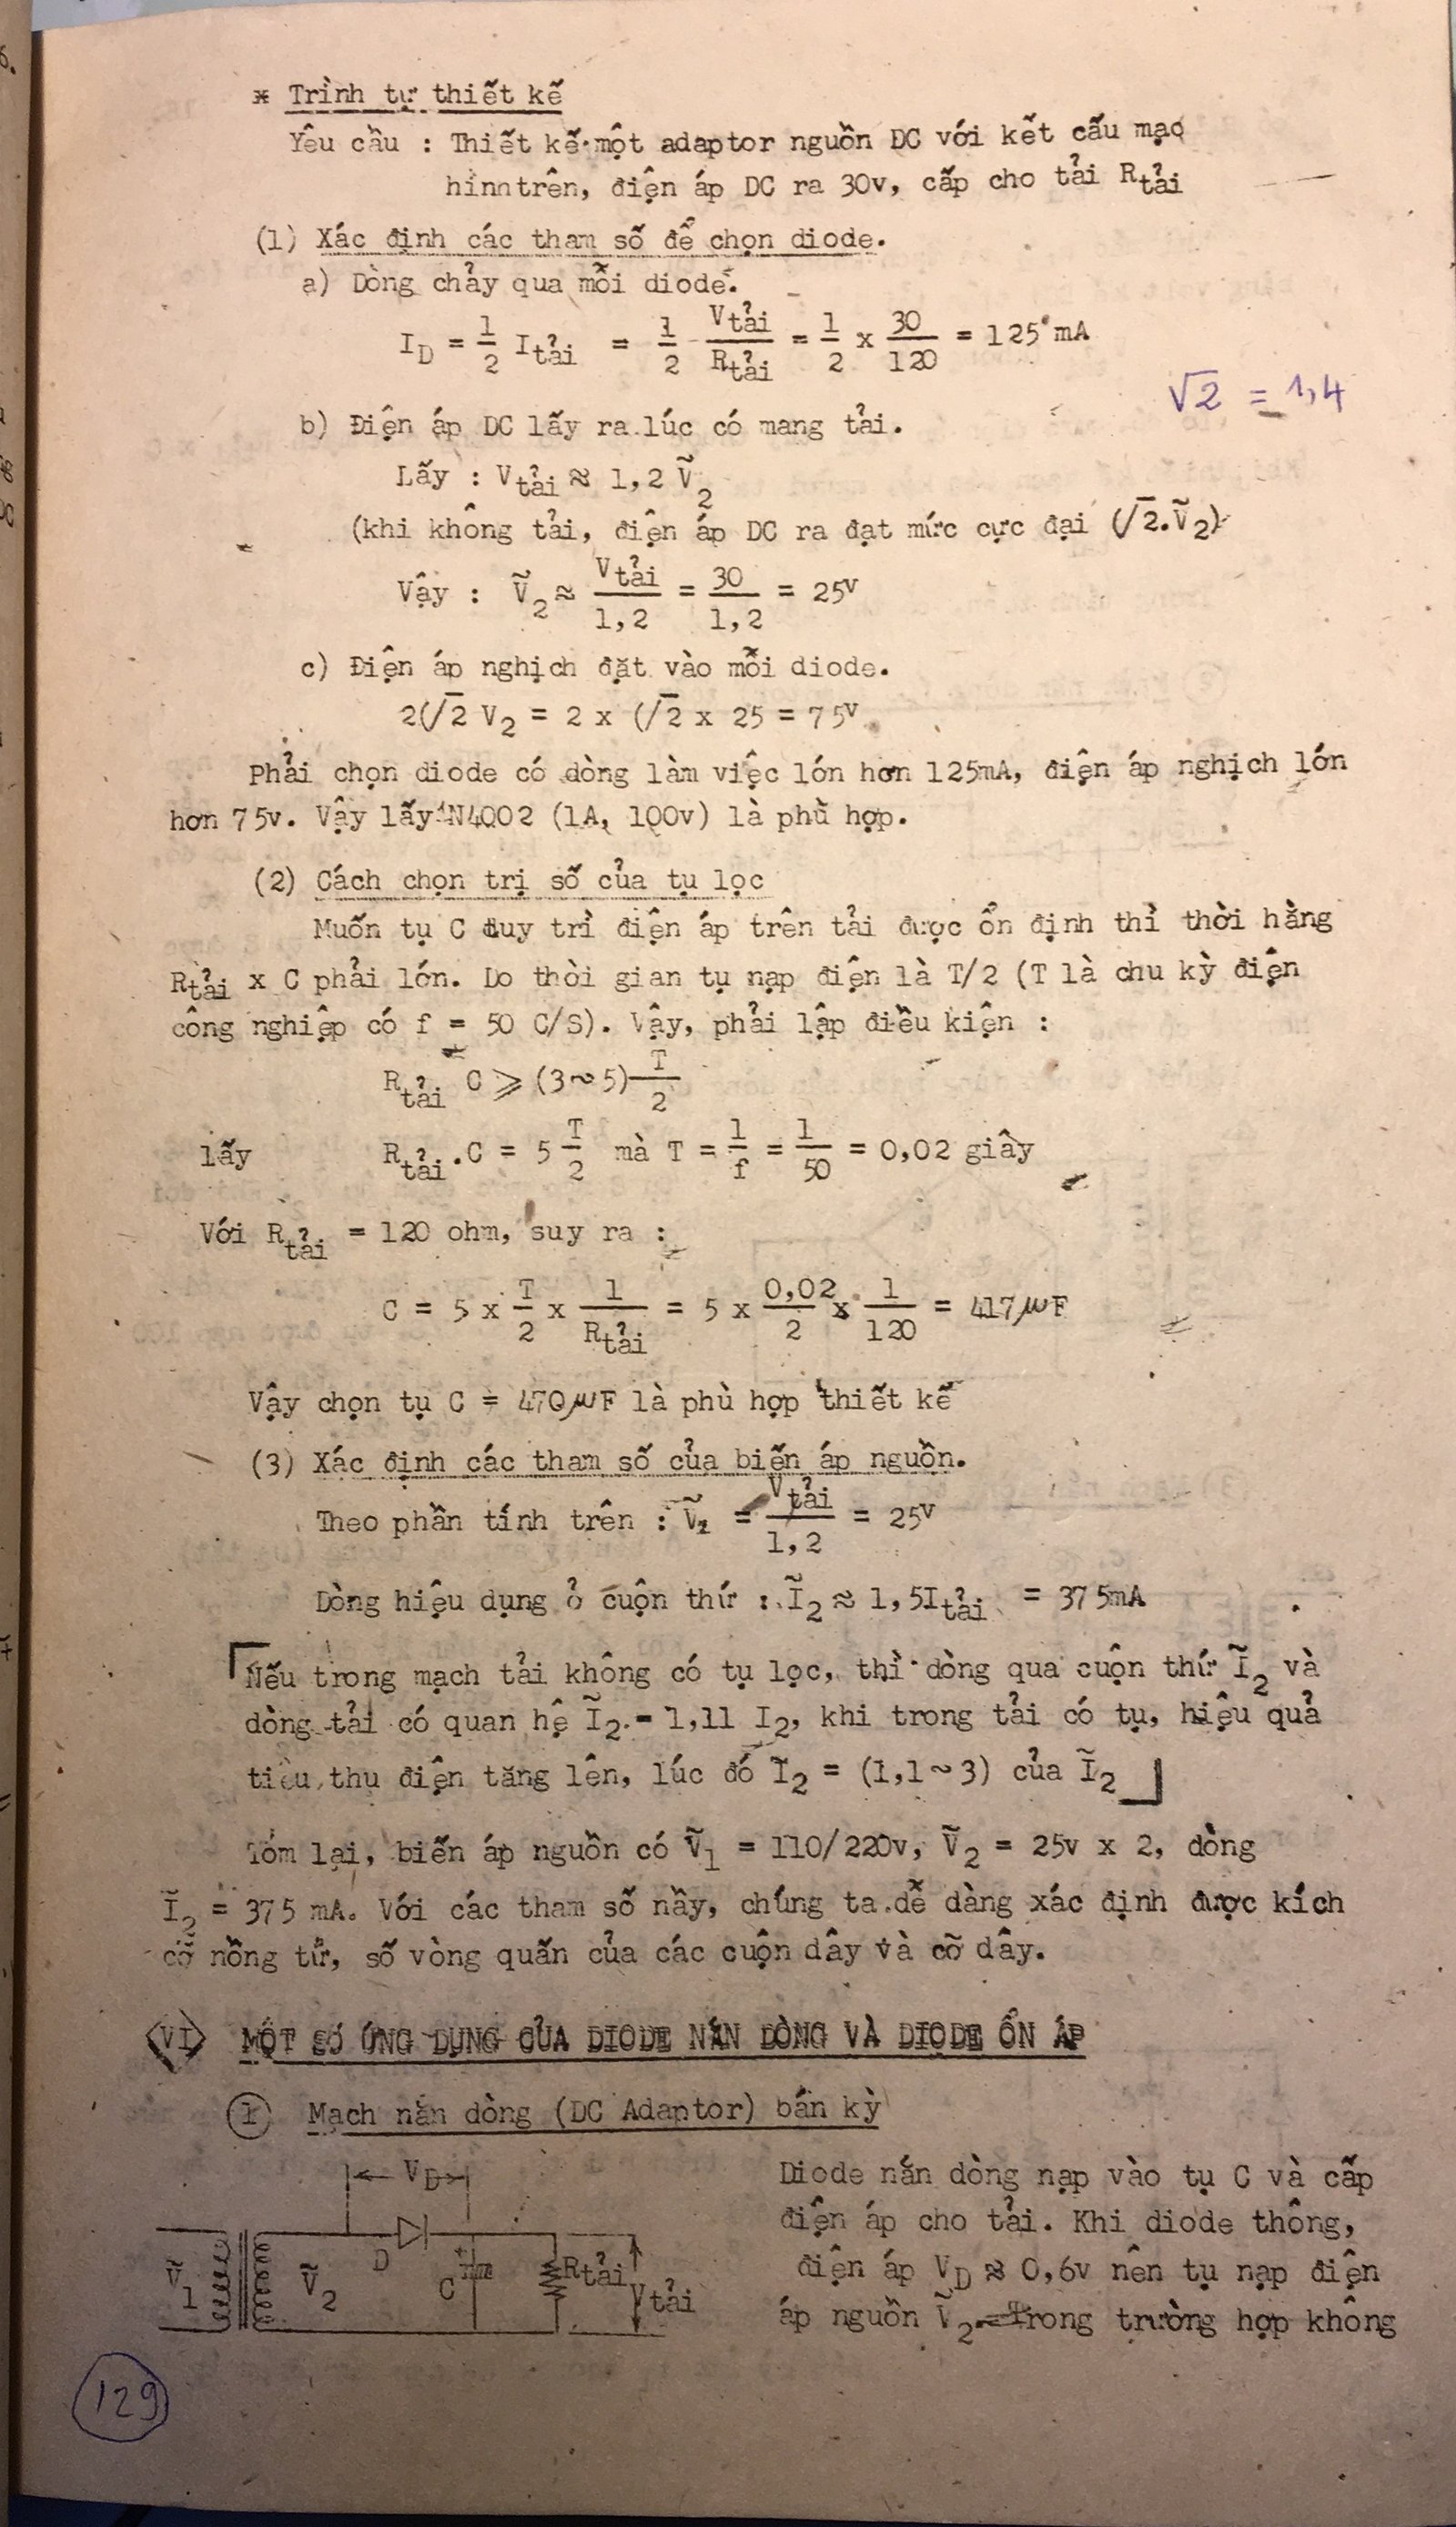 * Trình tự thiết kế
Yêu cầu : Thiết kế một adaptor nguồn DC với kết cấu mạc
hình trên, điện áp DC ra 30v, cấp cho tải Rtải
(1) Xác định các tham số để chọn diode.
a) Dòng chảy qua mỗi diode.
I_D = 1/2 Itải = 1/2 Vtải/Rtải = 1/2 x 30/120 = 125 mA
√2 = 1,4
b) Điện áp DC lấy ra lúc có mang tải.
Lấy : Vtải ≈ 1,2 Ṽ2
(khi không tải, điện áp DC ra đạt mức cực đại (√2.Ṽ2)
Vậy : Ṽ2 ≈ Vtải/1,2 = 30/1,2 = 25v
c) Điện áp nghịch đặt vào mỗi diode.
2(√2 V2 = 2 x (√2 x 25 = 75v
Phải chọn diode có dòng làm việc lớn hơn 125mA, điện áp nghịch lớn
hơn 75v. Vậy lấy 1N4002 (1A, 100v) là phù hợp.
(2) Cách chọn trị số của tụ lọc
Muốn tụ C duy trì điện áp trên tải được ổn định thì thời hằng
Rtải x C phải lớn. Do thời gian tụ nạp điện là T/2 (T là chu kỳ điện
công nghiệp có f = 50 C/S). Vậy, phải lập điều kiện :
Rtải C ⩾ (3~5) T/2
lấy Rtải.C = 5 T/2 mà T = 1/f = 1/50 = 0,02 giây
Với Rtải = 120 ohm, suy ra :
C = 5 x T/2 x 1/Rtải = 5 x 0,02/2 x 1/120 = 417 µF
Vậy chọn tụ C = 470µF là phù hợp thiết kế
(3) Xác định các tham số của biến áp nguồn.
Theo phần tính trên : Ṽ2 = Vtải/1,2 = 25v
Dòng hiệu dụng ở cuộn thứ : Ĩ2 ≈ 1,5Itải = 375mA
Nếu trong mạch tải không có tụ lọc, thì dòng qua cuộn thứ Ĩ2 và
dòng tải có quan hệ Ĩ2 = 1,11 I2, khi trong tải có tụ, hiệu quả
tiêu thụ điện tăng lên, lúc đó Ĩ2 = (1,1~3) của Ĩ2
Tóm lại, biến áp nguồn có Ṽ1 = 110/220v, Ṽ2 = 25v x 2, dòng
Ĩ2 = 375 mA. Với các tham số nầy, chúng ta dễ dàng xác định được kích
cỡ nồng từ, số vòng quấn của các cuộn dây và cỡ dây.
VI MỘT SỐ ỨNG DỤNG CỦA DIODE NẮN DÒNG VÀ DIODE ỔN ÁP
1 Mạch nắn dòng (DC Adaptor) bán kỳ
V_D
Ṽ1
Ṽ2
D
+
C
Rtải
Vtải
Diode nắn dòng nạp vào tụ C và cấp
điện áp cho tải. Khi diode thông,
điện áp V_D ≈ 0,6v nên tụ nạp điện
áp nguồn Ṽ2. Trong trường hợp không
129